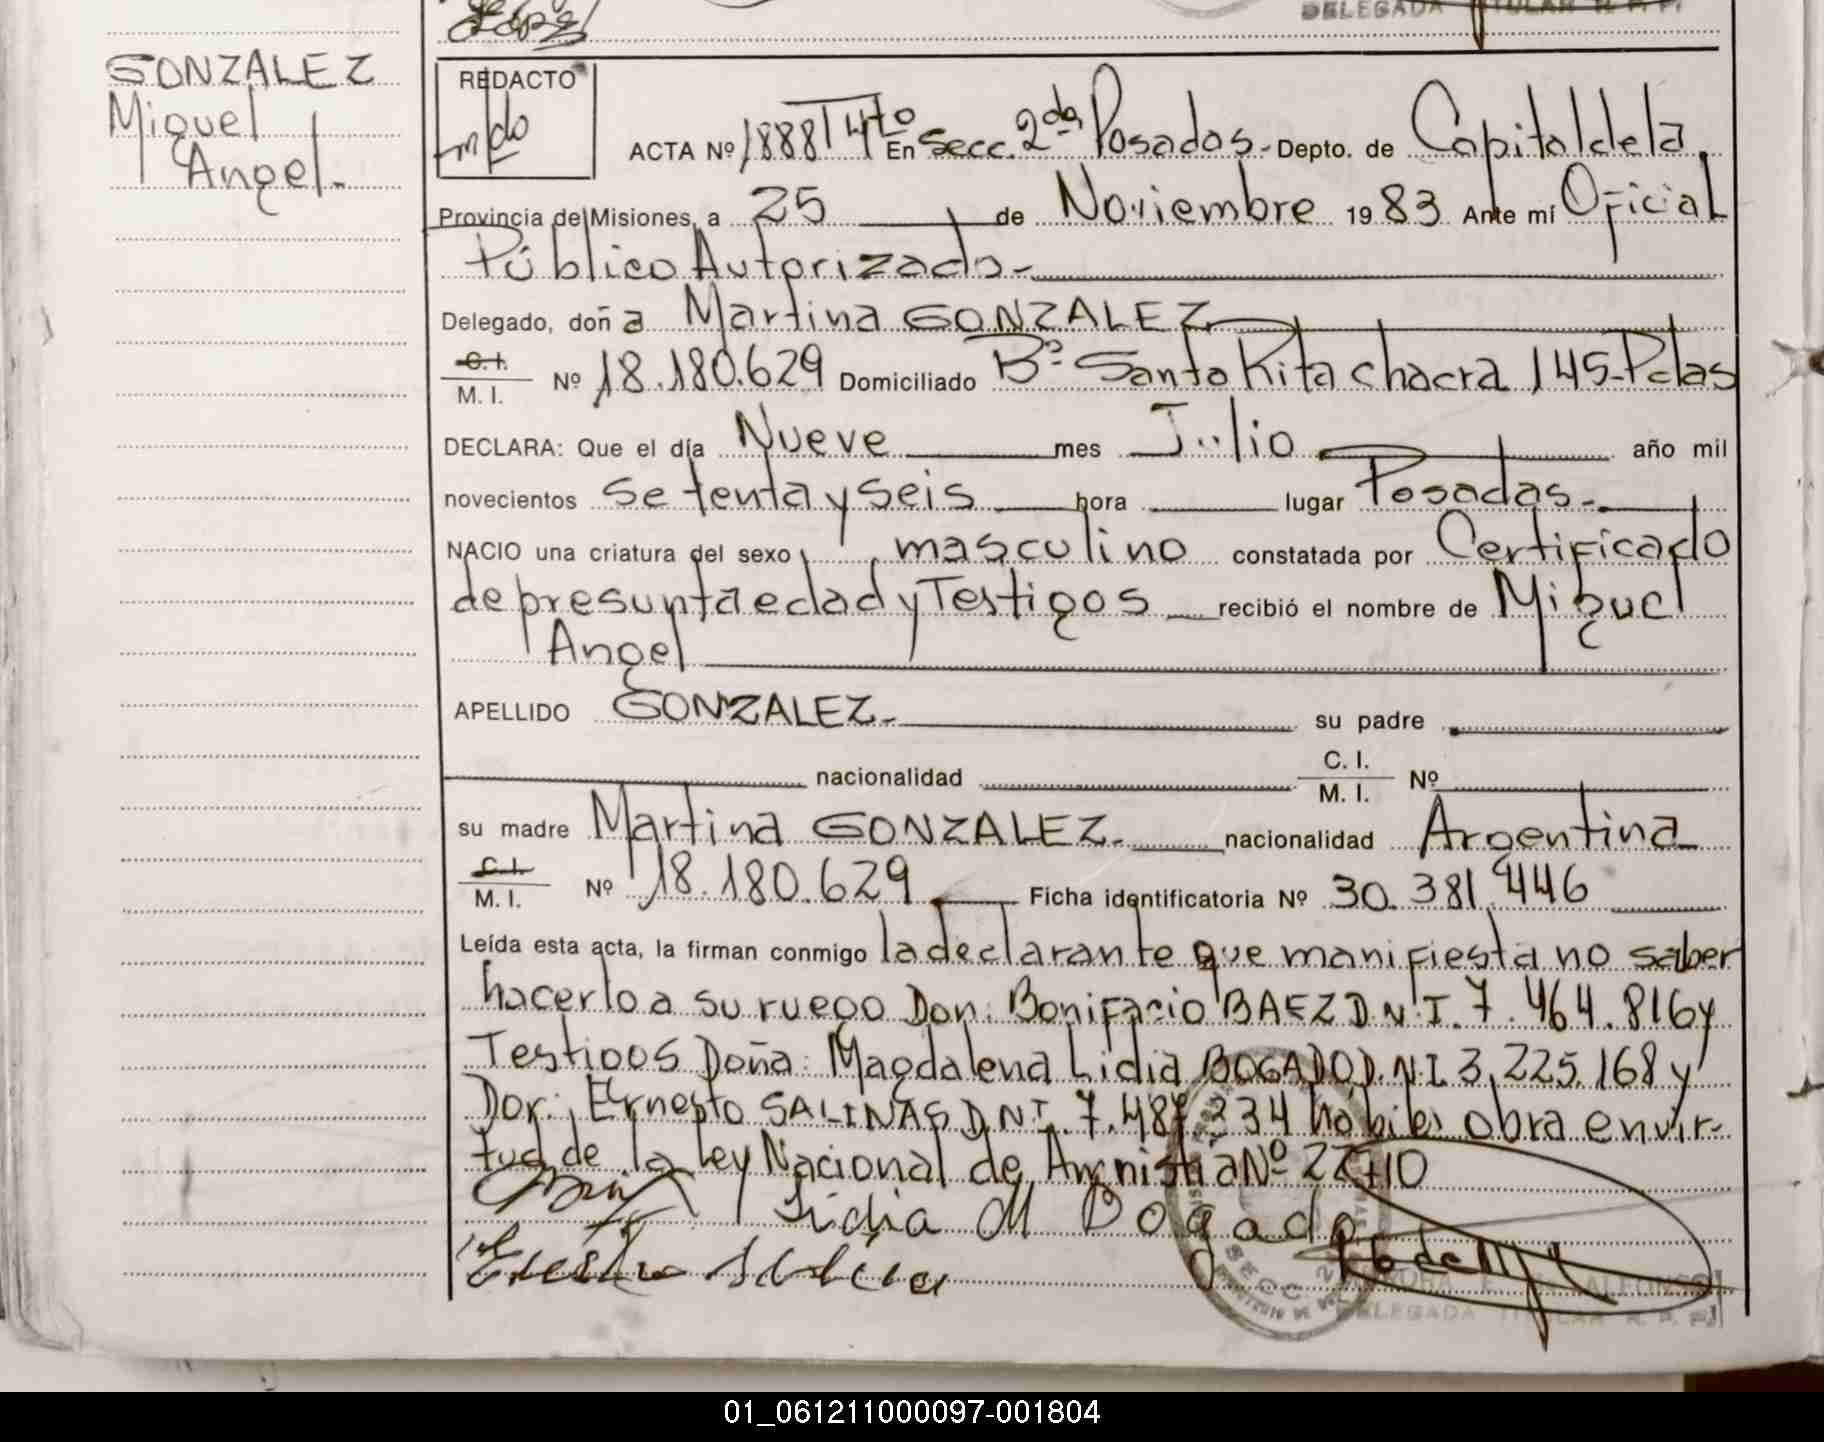 DELEGADA TITULAR R. P. P.
GONZALEZ
Miguel
Angel.-
REDACTO
ACTA Nº 1888 T 4to En Secc. 2da Posadas.- Depto. de Capital de la
Provincia de Misiones, a 25 de Noviembre 1983 Ante mí Oficial
Público Autorizado.-
Delegado, doña Martina GONZALEZ
C. I.
M. I. Nº 18.180.629 Domiciliado Bº Santa Rita chacra 145-Pdas
DECLARA: Que el día Nueve mes Julio año mil
novecientos setenta y seis hora lugar Posadas.-
NACIO una criatura del sexo masculino constatada por Certificado
de presunta edad y Testigos recibió el nombre de Miguel
Angel
APELLIDO GONZALEZ.- su padre
nacionalidad C. I. M. I. Nº
su madre Martina GONZALEZ.- nacionalidad Argentina
C. I.
M. I. Nº 18.180.629 Ficha identificatoria Nº 30.381.446
Leída esta acta, la firman conmigo la declarante que manifiesta no saber
hacerlo a su ruego Don: Bonifacio BAEZ D.N.I. 7.464.816 y
Testigos Doña: Magdalena Lidia BOGADO D.N.I. 3.225.168 y
Don: Ernesto SALINAS D.N.I. 7.487.234 hábiles obra en vir-
tud de la Ley Nacional de Amnistia Nº 22710
Lidia M Bogado
DELEGADA TITULAR R. P. P.
01_061211000097-001804